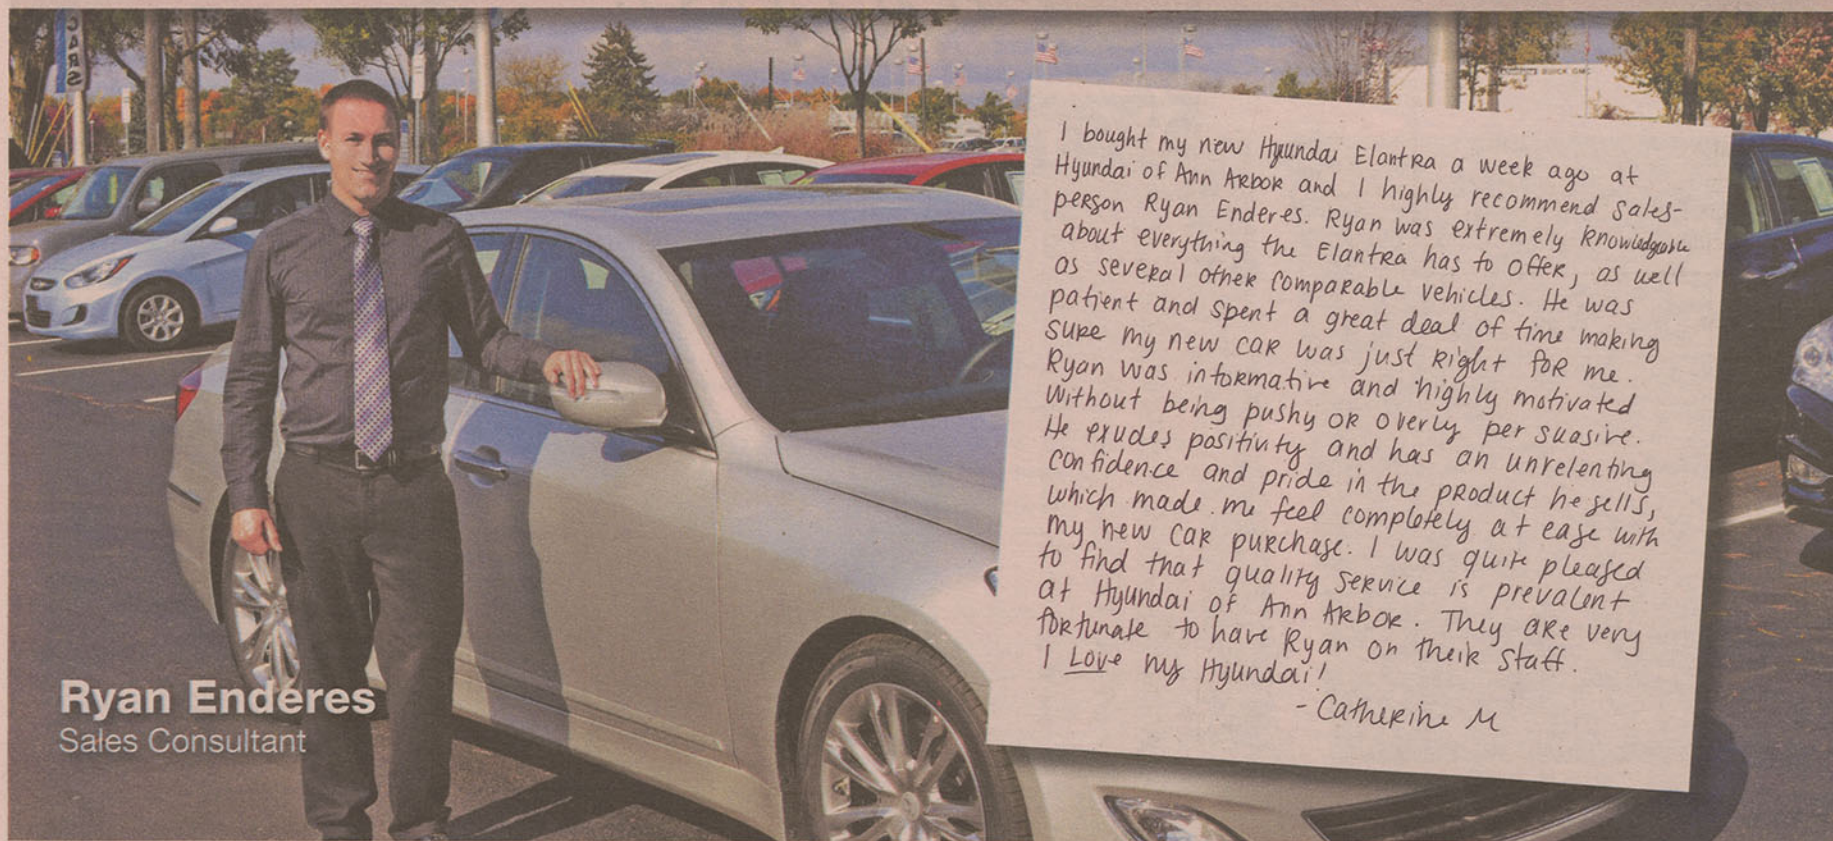 CARS
BUICK GMC
I bought my new Hyundai Elantra a week ago at
Hyundai of Ann Arbor and I highly recommend sales-
person Ryan Enderes. Ryan was extremely knowledgeable
about everything the Elantra has to offer, as well
as several other comparable vehicles. He was
patient and spent a great deal of time making
sure my new car was just right for me.
Ryan was informative and highly motivated
without being pushy or overly persuasive.
He exudes positivity and has an unrelenting
confidence and pride in the product he sells,
which made me feel completely at ease with
my new car purchase. I was quite pleased
to find that quality service is prevalent
at Hyundai of Ann Arbor. They are very
fortunate to have Ryan on their staff.
I Love my Hyundai!
- Catherine M
Ryan Enderes
Sales Consultant